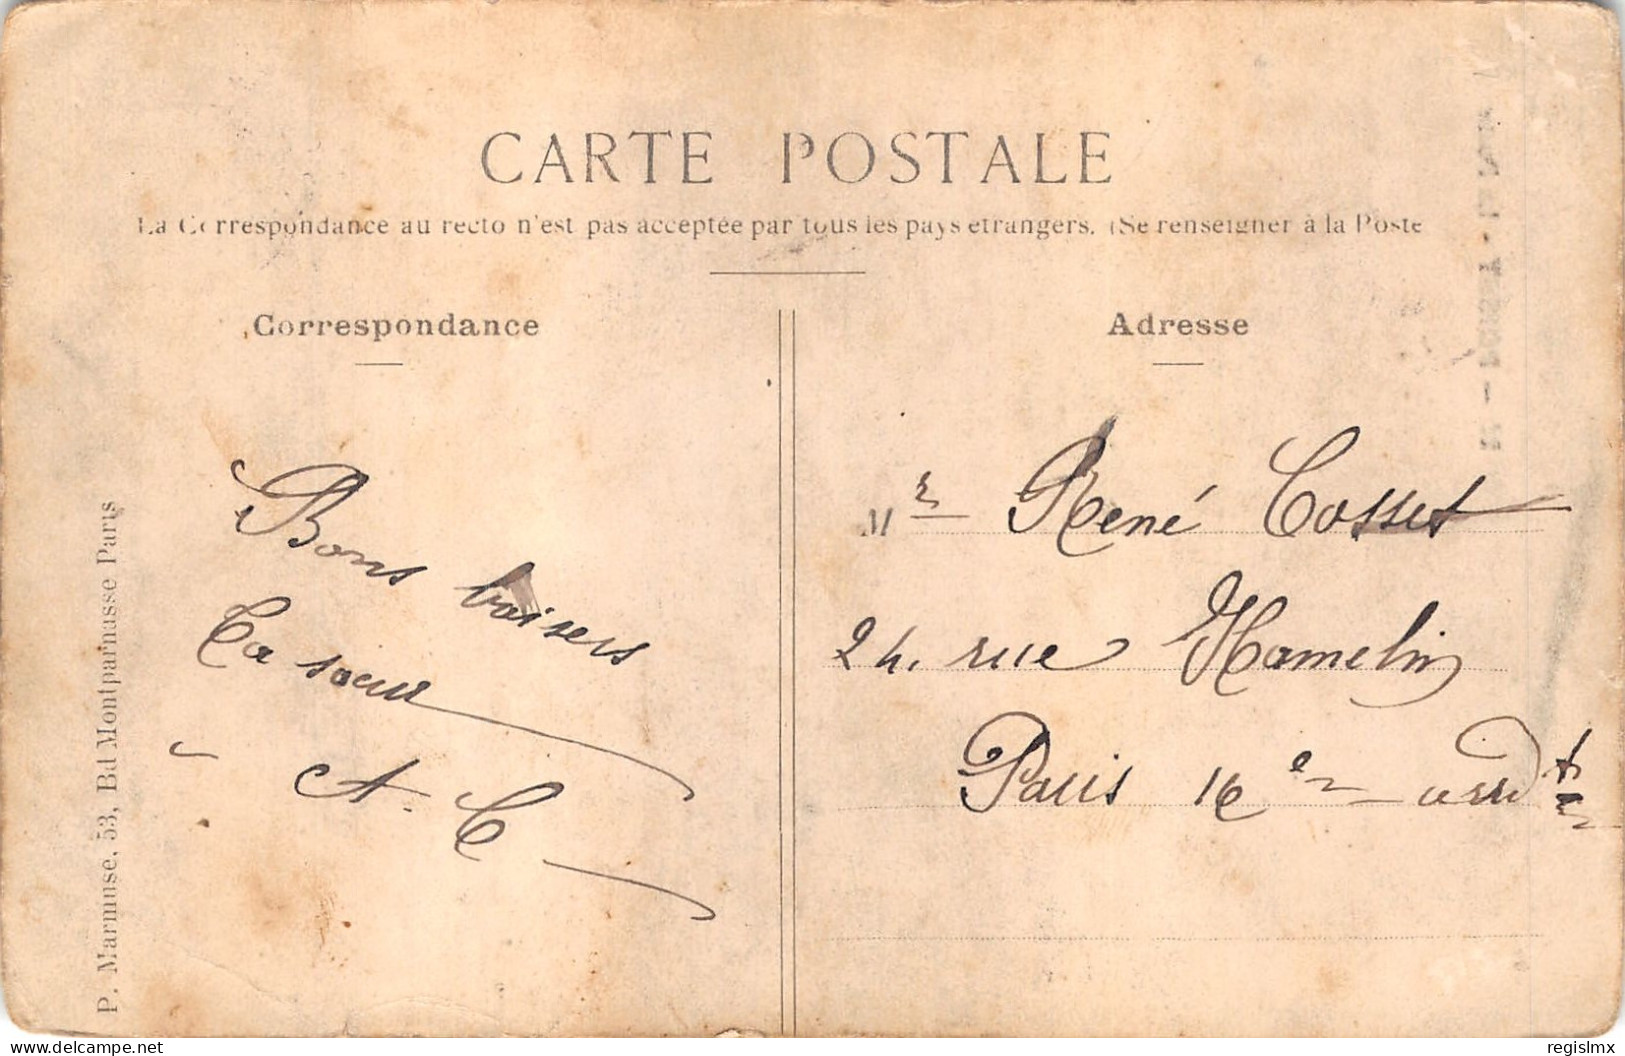 CARTE POSTALE
La Correspondance au recto n'est pas acceptée par tous les pays etrangers. (Se renseigner à la Poste
Correspondance
Bons baisers
Ta soeur
A. C
P. Marmuse, 53, Bd Montparnasse Paris
Adresse
Mr René Cosset
24. rue Hamelin
Paris 16e arrdt
delcampe.net
regislmx